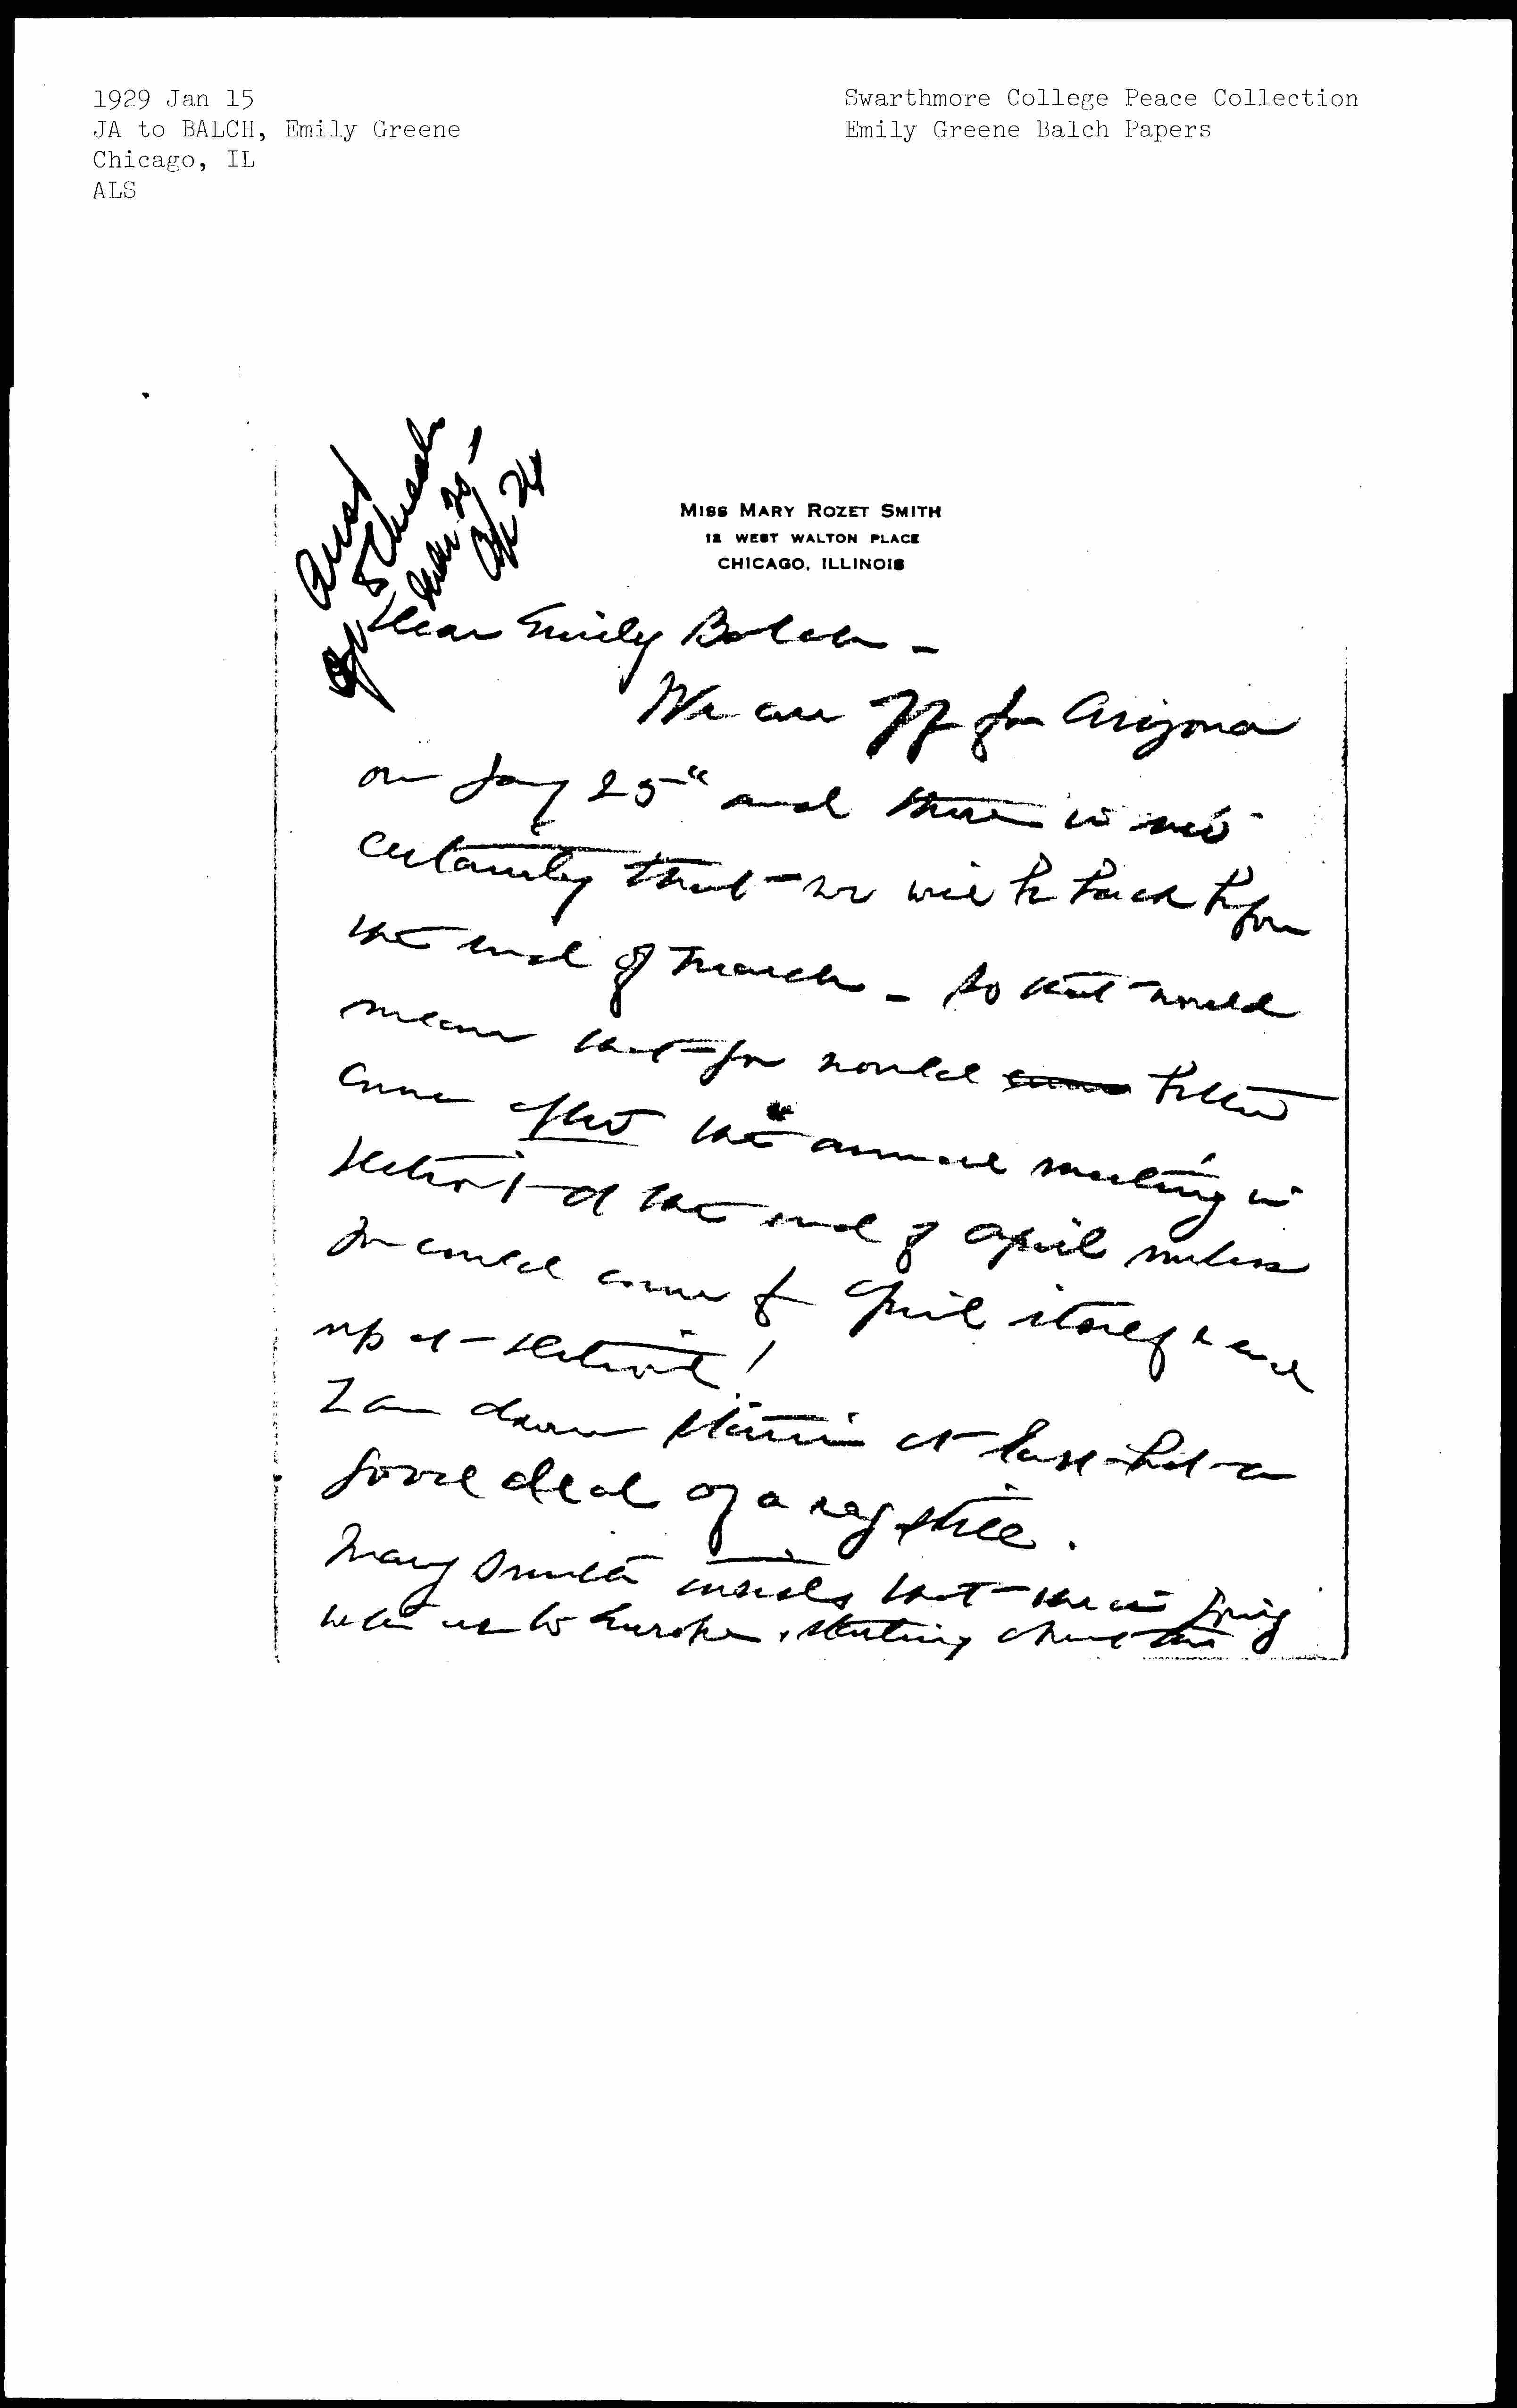 1929 Jan 15
JA to BALCH, Emily Greene
Chicago, IL
ALS
Swarthmore College Peace Collection
Emily Greene Balch Papers
MISS MARY ROZET SMITH
12 WEST WALTON PLACE
CHICAGO, ILLINOIS
Dear Emily Balch -
We are off for Arizona
on Jany 25" and there is no
certainty that we will be back before
the end of March - so that would
mean that you would come better
come after the annual meeting in
Detroit at the end of April unless
you could come April &
up at Detroit!
I am down stairs at last but a
good deal of a rag still.
Mary Smith insists that she is going
with us to Europe, starting about the